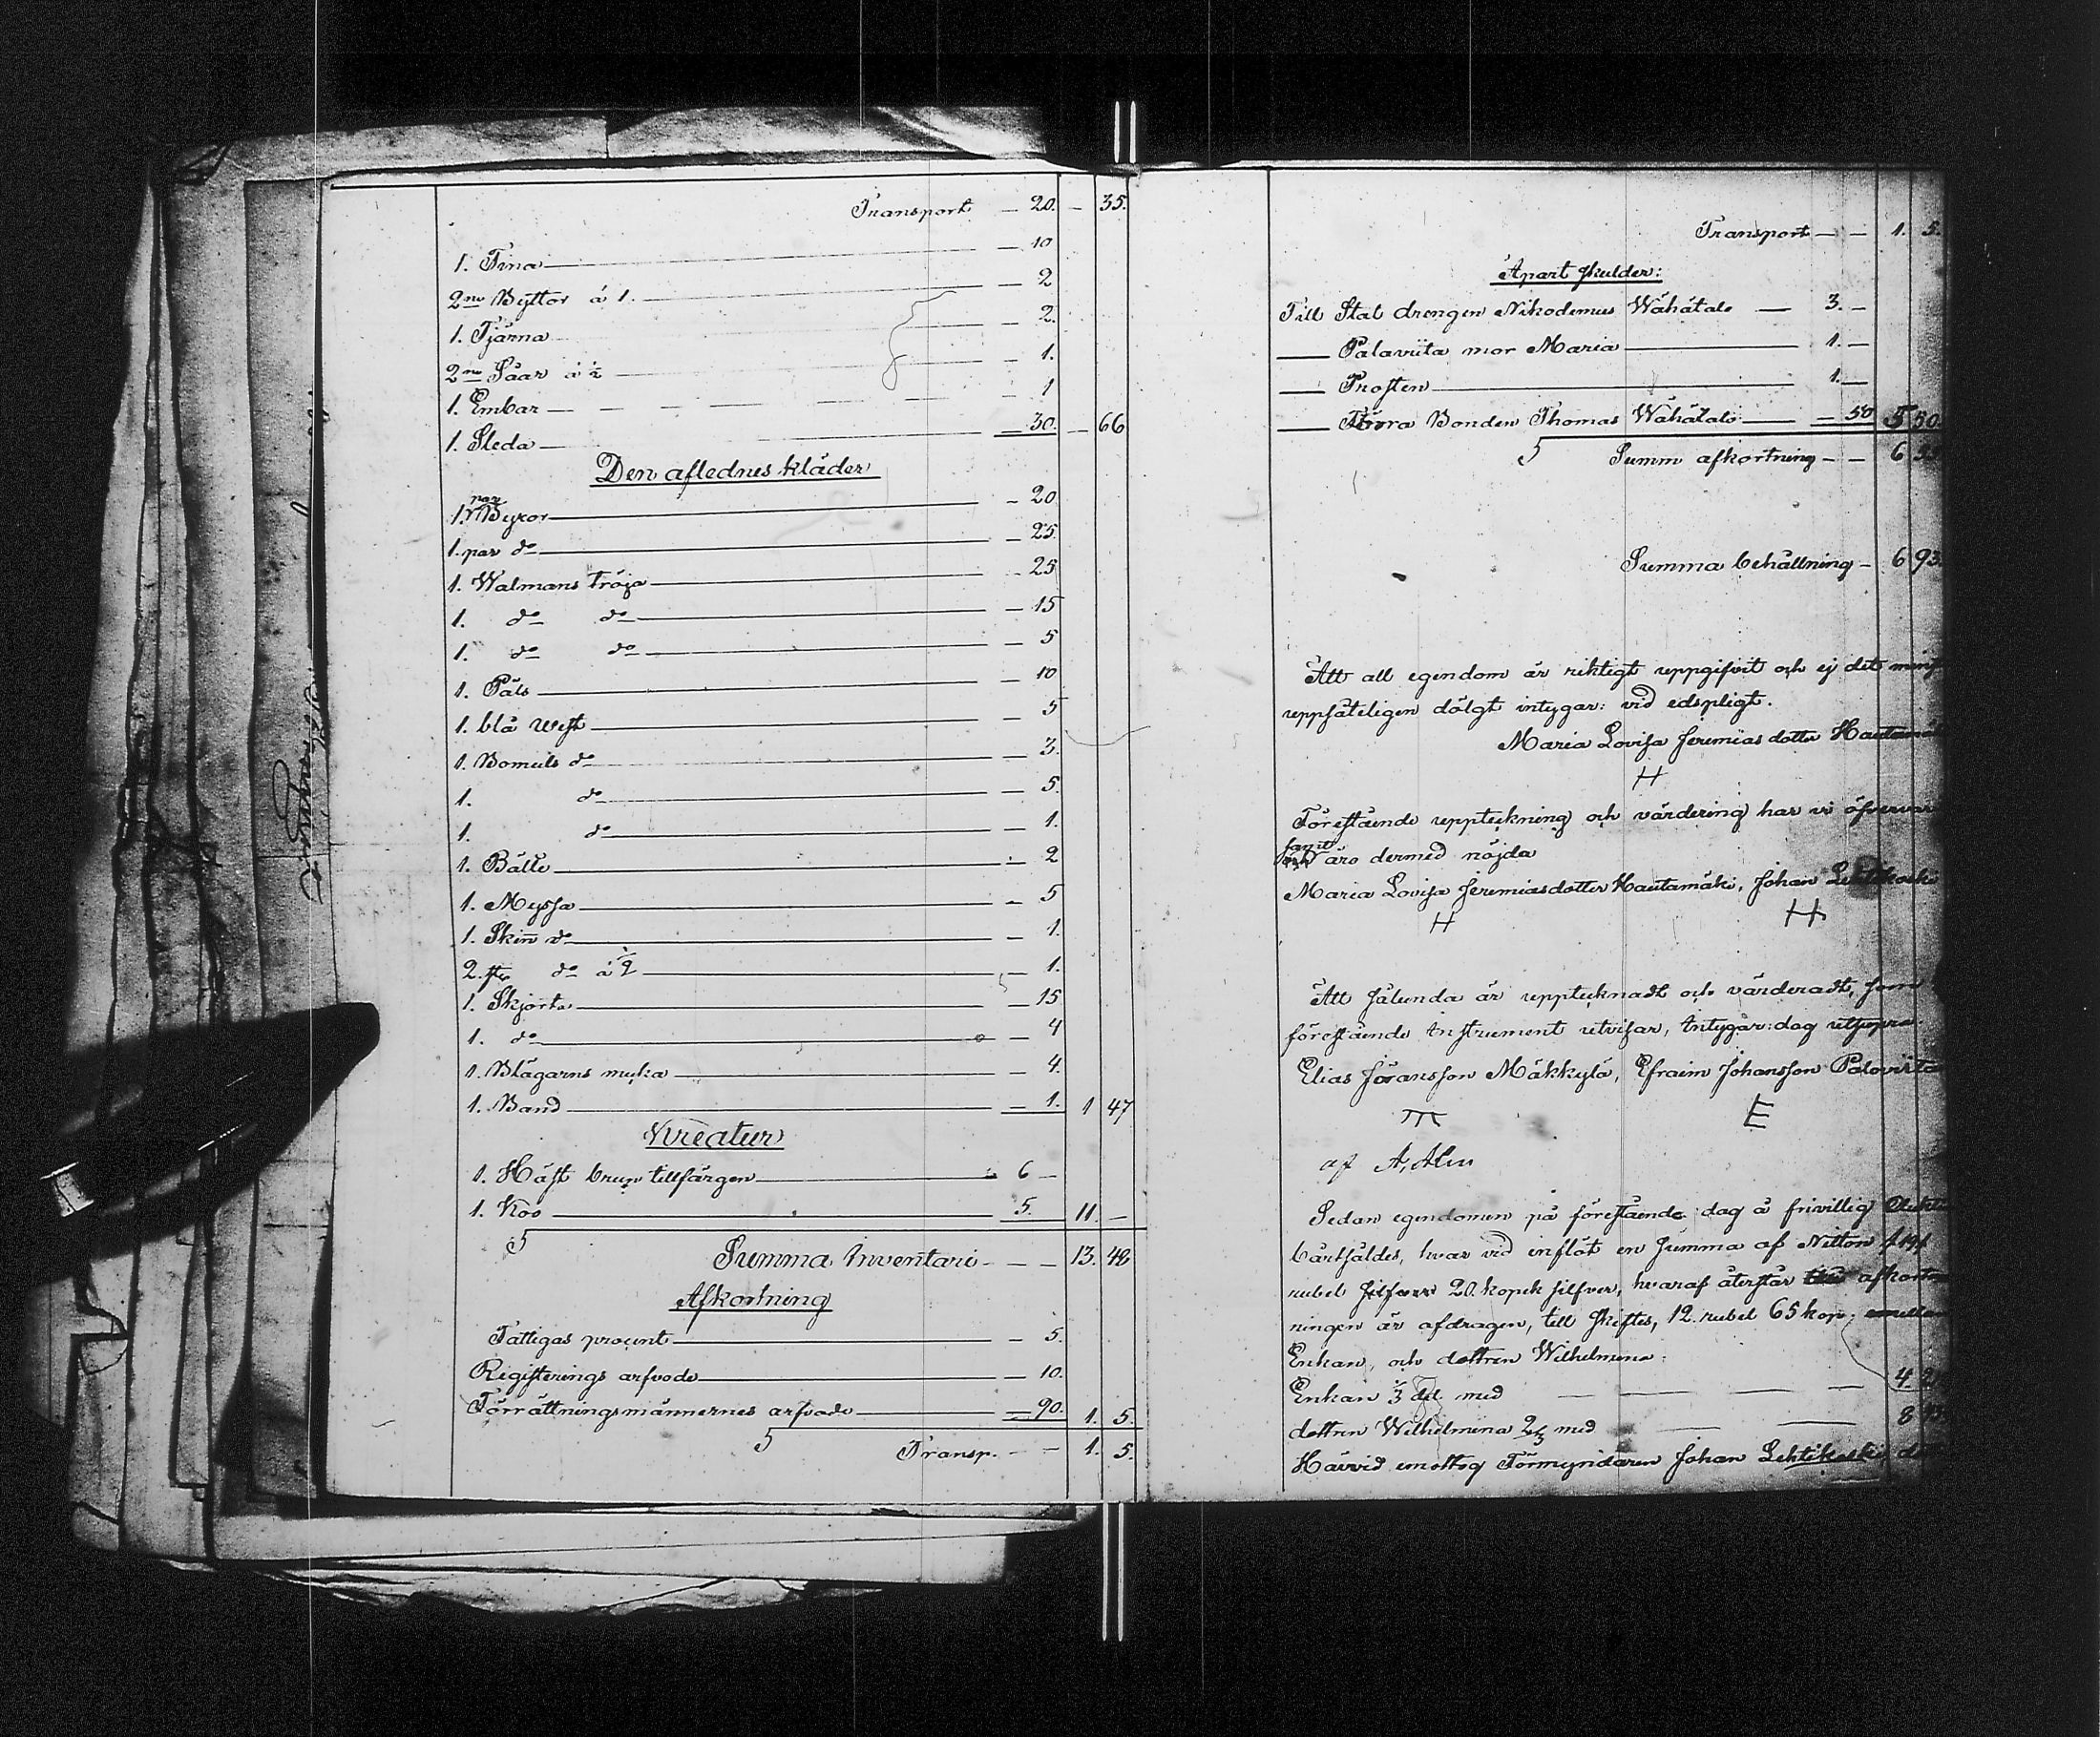 Transport — 20. — 35.
1. Tina — 10
2ne Byttor á 1. — 2
1. Tjärna — 2.
2ne Såar á ½ — 1.
1. Embar — 1
1. Sleda — 30. — 66
Den aflednes kläder
1. par Byxor — 20
1. par do — 25.
1. Walmans tröja — 25
1. do do — 15
1. do do — 5
1. Päls — 10
1. blå west — 5
1. Bomuls do — 3.
1. do — 5.
1. do — 1.
1. Bälte — 2
1. Myssa — 5
1. Skin do — 1.
2. st. do á ½ — 1.
1. Skjorta — 15
1. do — 4
1. Blågarns — 4.
1. Band — 1. 1 47
Kreatur
1. Häst brun tillfärgen — 6 —
1. Koo — 5. 11. —
Summa Inventari — 13. 48
Afkortning
Fattigas procent — 5.
Registerings arfvode — 10.
Förrättningsmännernes arfvode — 90. 1. 5.
Transp. — 1. 5.
Transport — 1. 5.
Apart skulder:
Till Stal drengen Nikodemus Wähätalo — 3. —
— Palaviita mor Maria — 1. —
— Prosten — 1. —
— Förra Bonden Thomas Wähätalo — 50 5 50
Summ afkortning — 6
Summa behållning — 6 93
Att all egendom är riktigt uppgifvit och ej det
uppsåteligen dölgt intygar: vid edspligt.
Maria Lovisa Jeremias dotter
H
Förestående uppteckning och värdering har vi
samt äro dermed nöjda
Maria Lovisa Jeremiasdotter Hautamäki, Johan
H H
Att sålunda är upptecknadt och värderadt, som
förestående instrument utvisar, intygar: dag utsupra.
Elias Jöransson Mäkkylä, Efraim Johansson
m E
af A, Alm
Sedan egendomen på förestående dag å frivillig
bärtsåldes, hvar vid inflöt en summa af Nitton
rubel silfver 20. kopek silfver, hvaraf återstår
ningen är afdragen, till skiftes, 12. rubel 65 kop;
Enkan, och dottren Wilhelmina.
Enkan ⅓ del med — 4.
dottren Wilhelmina ⅔ med — 8
Härvid emottog Förmyndaren Johan Lehtikoski